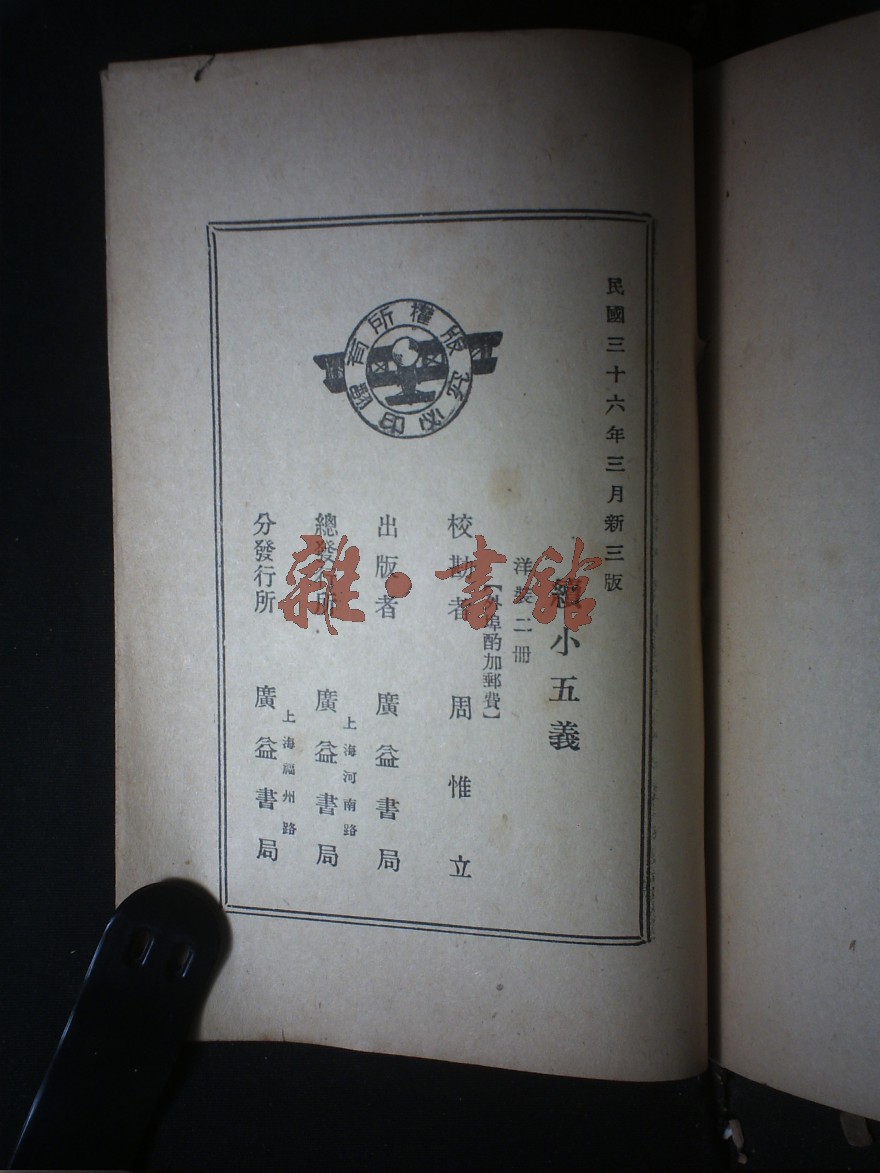 民國三十六年三月新三版
續小五義
洋裝二冊
【外埠酌加郵費】
校勘者 周惟立
出版者 廣益書局
總發行所 上海河南路 廣益書局
分發行所 上海福州路 廣益書局
版權所有
翻印必究
雜·書館